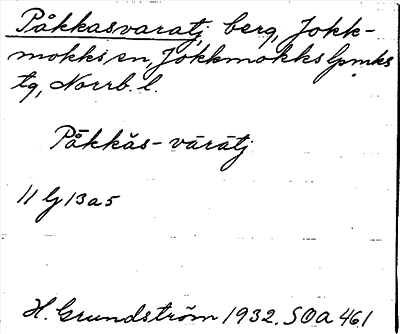 Påkkasvaratj, berg, Jokk-
mokks sn, Jokkmokks lpmks
tg, Norrb. l.
Pākkăs-vārātj
11 G 13 a 5
H. Grundström 1932. SOA 461